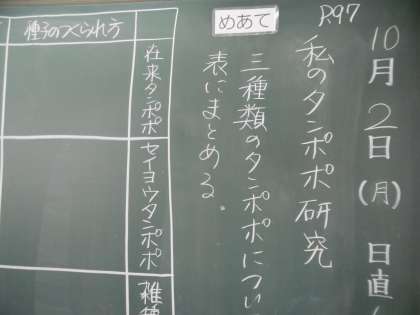 P.97
10月2日(月) 日直
私のタンポポ研究
めあて
三種類のタンポポについ
表にまとめる。
種子のつくられ方
在来タンポポ
セイヨウタンポポ
雑種